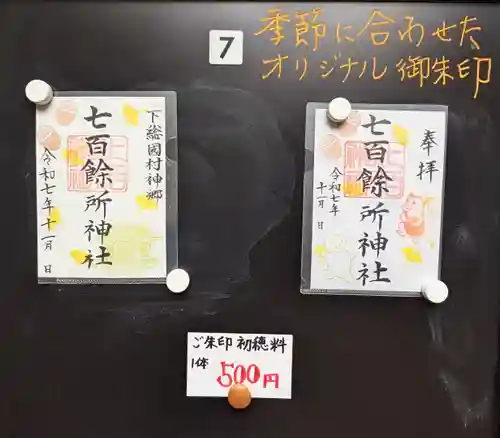 7
季節に合わせた
オリジナル御朱印
下総國村神郷
七百餘所神社
令和七年十一月 日
奉拝
七百餘所神社
令和七年
十一月 日
ご朱印初穂料
1体 500円